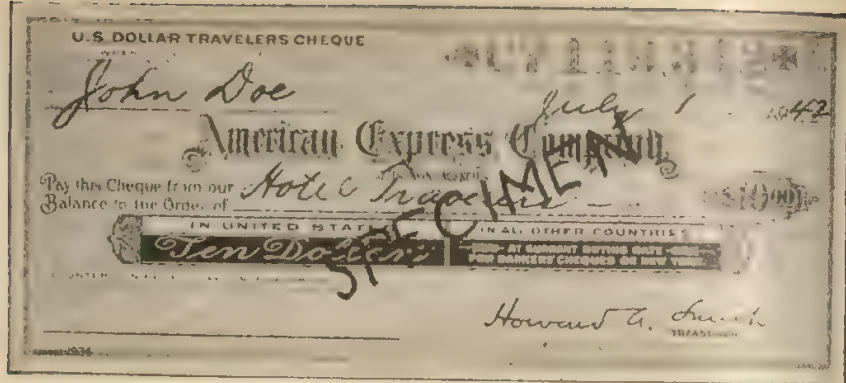 U.S. DOLLAR TRAVELERS CHEQUE
John Doe
July 1 1942
American Express Company
Pay this Cheque from our
Balance to the Order of Hotel $10.00
SPECIMEN
IN UNITED STATES IN ALL OTHER COUNTRIES
Ten Dollars AT CURRENT BUYING RATE
FOR BANKERS CHEQUES ON NEW YORK
Howard A. Smith
TREASURER